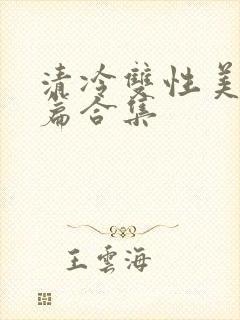 清冷雙性美
篇合集
王雲海